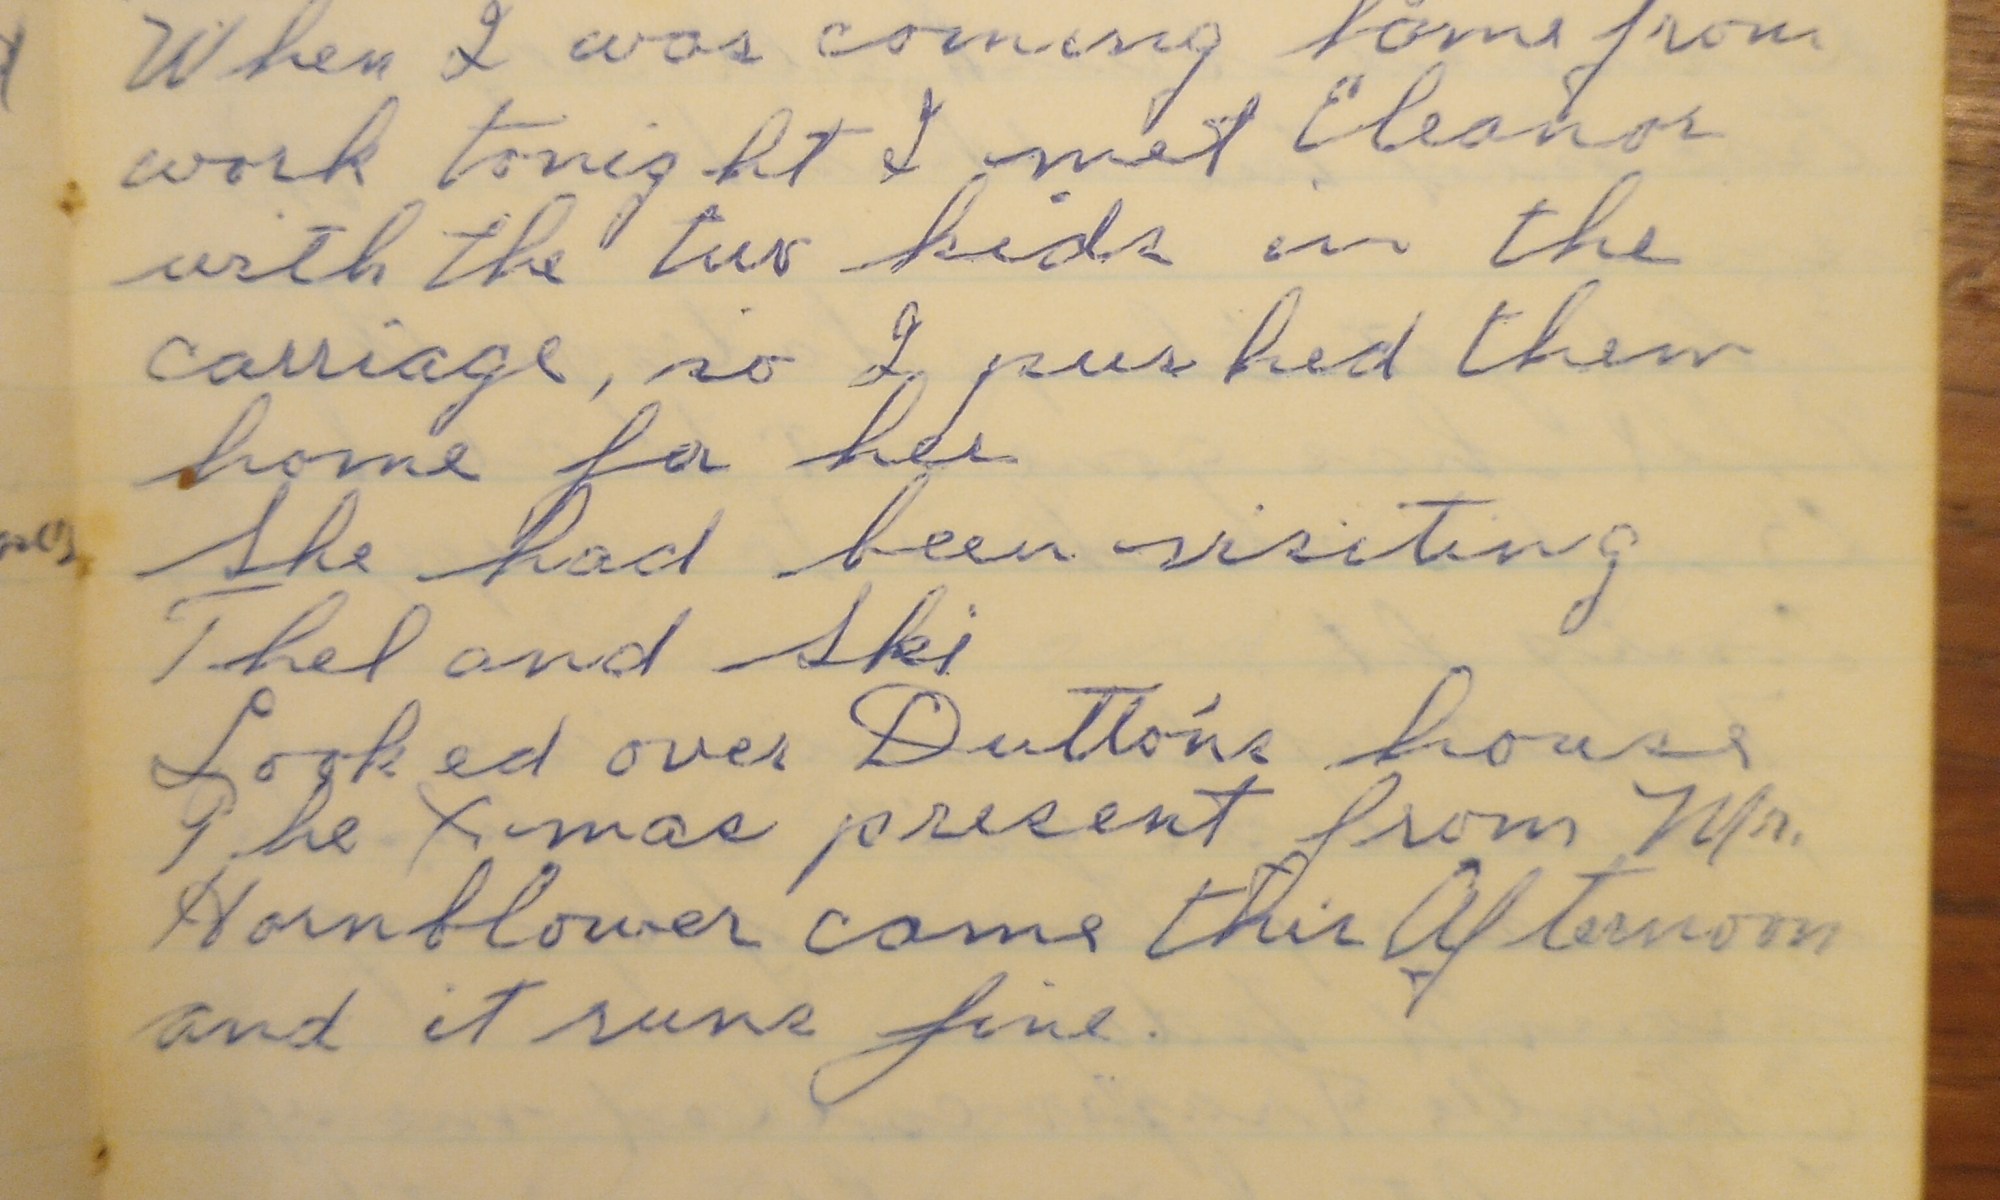 When I was coming home from
work tonight I met Eleanor
with the two kids in the
carriage, so I pushed them
home for her
She had been visiting
Thel and Ski
Looked over Dutton's house
The X-mas present from Mr.
Hornblower came this Afternoon
and it runs fine.